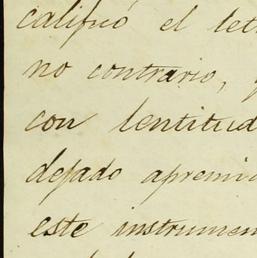 calificó el let
no contrario,
con lentitud
dejado apremia
este instrumen